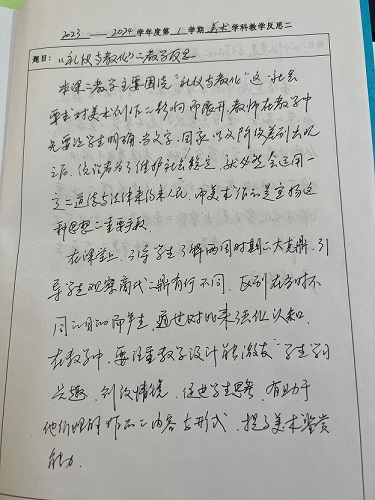 2023 — 2024学年度第 1 学期 美术 学科教学反思二
题目：《礼仪与教化》二教学反思
本课二教学主要围绕"礼仪与教化"这一社会
要求对美术创作二影响而展开，教师在教学中
先要让学生明确，当文字、国家，以及阶级差别出现
之后，统治者为了维护社会稳定，就必然会运用一
定二道德与法律来约束人民，而美术作品是宣扬这
种思想二重要手段。
在课堂上，引导学生了解两周时期二大克鼎，引
导学生观察商代二鼎有何不同，区别在当时不
同二目的而产生，通过对比来强化认知，
在教学中，要注重教学设计能激发学生学习
兴趣，创设情境，促进学生思考，有助于
他们理解作品二内容与形式，提高美术鉴赏
能力。